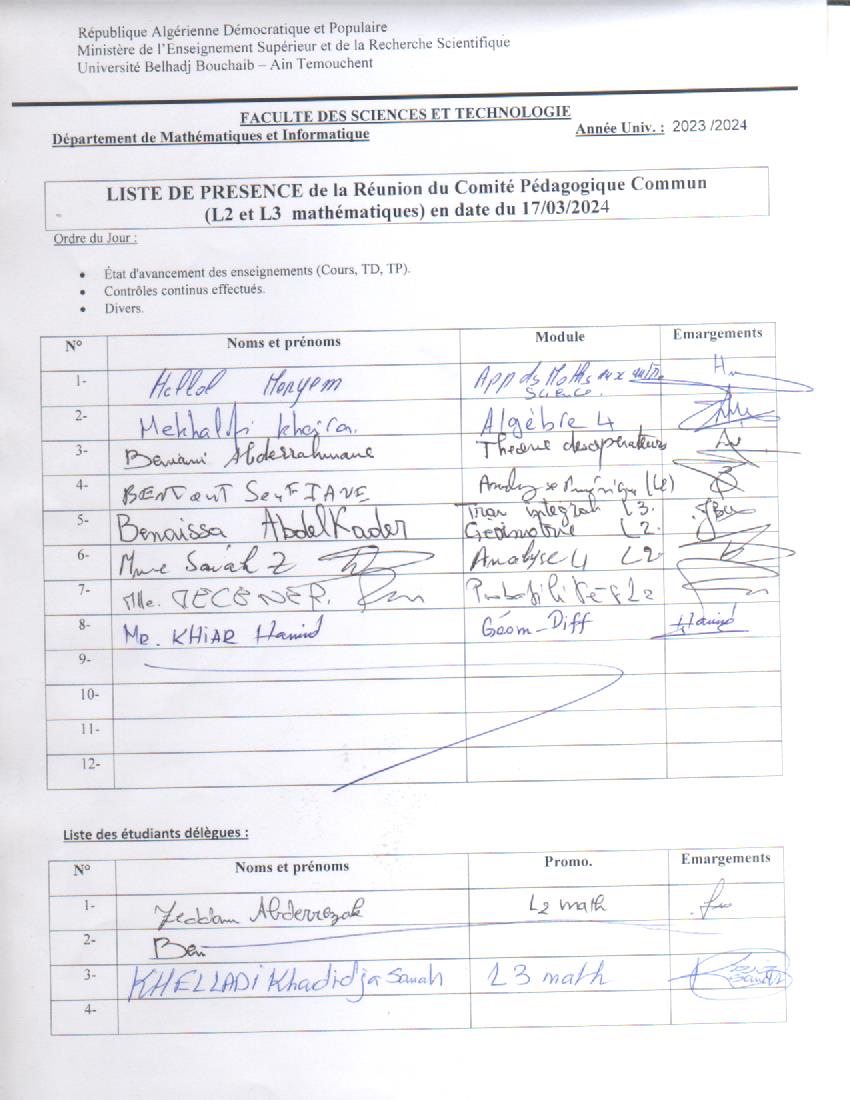 République Algérienne Démocratique et Populaire
Ministère de l'Enseignement Supérieur et de la Recherche Scientifique
Université Belhadj Bouchaib – Ain Temouchent
FACULTE DES SCIENCES ET TECHNOLOGIE
Département de Mathématiques et Informatique Année Univ. : 2023 /2024
LISTE DE PRESENCE de la Réunion du Comité Pédagogique Commun
(L2 et L3 mathématiques) en date du 17/03/2024
Ordre du Jour :
• État d'avancement des enseignements (Cours, TD, TP).
• Contrôles continus effectués.
• Divers.
N° Noms et prénoms Module Emargements
1- Hellal Meryem App ds Maths aux
Science.
2- Mekhalfi kheira. Algèbre 4
3- Beniani Abderrahmane Théorie des opérateurs
4- SOUFIANE Analyse Numérique
5- Benaissa AbdelKader Tran intégral L3.
Géométrie L2.
6- Mme Saïah Z Analyse 4 L2
7- Mlle. Probabilités L2
8- Mr. KHIAR Hamid Géom-Diff Hamid
9-
10-
11-
12-
Liste des étudiants délègues :
N° Noms et prénoms Promo. Emargements
1- Zeddam Abderrezak L2 math
2- Ben
3- KHELLADI Khadidja Sanah L3 math
4-